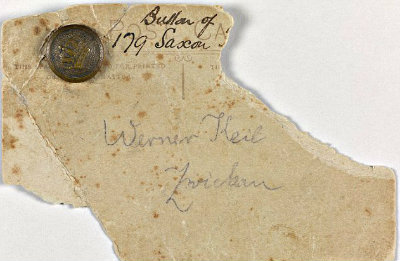 Button of
179 Saxon
PRINTED
Werner Keil
Zwickau